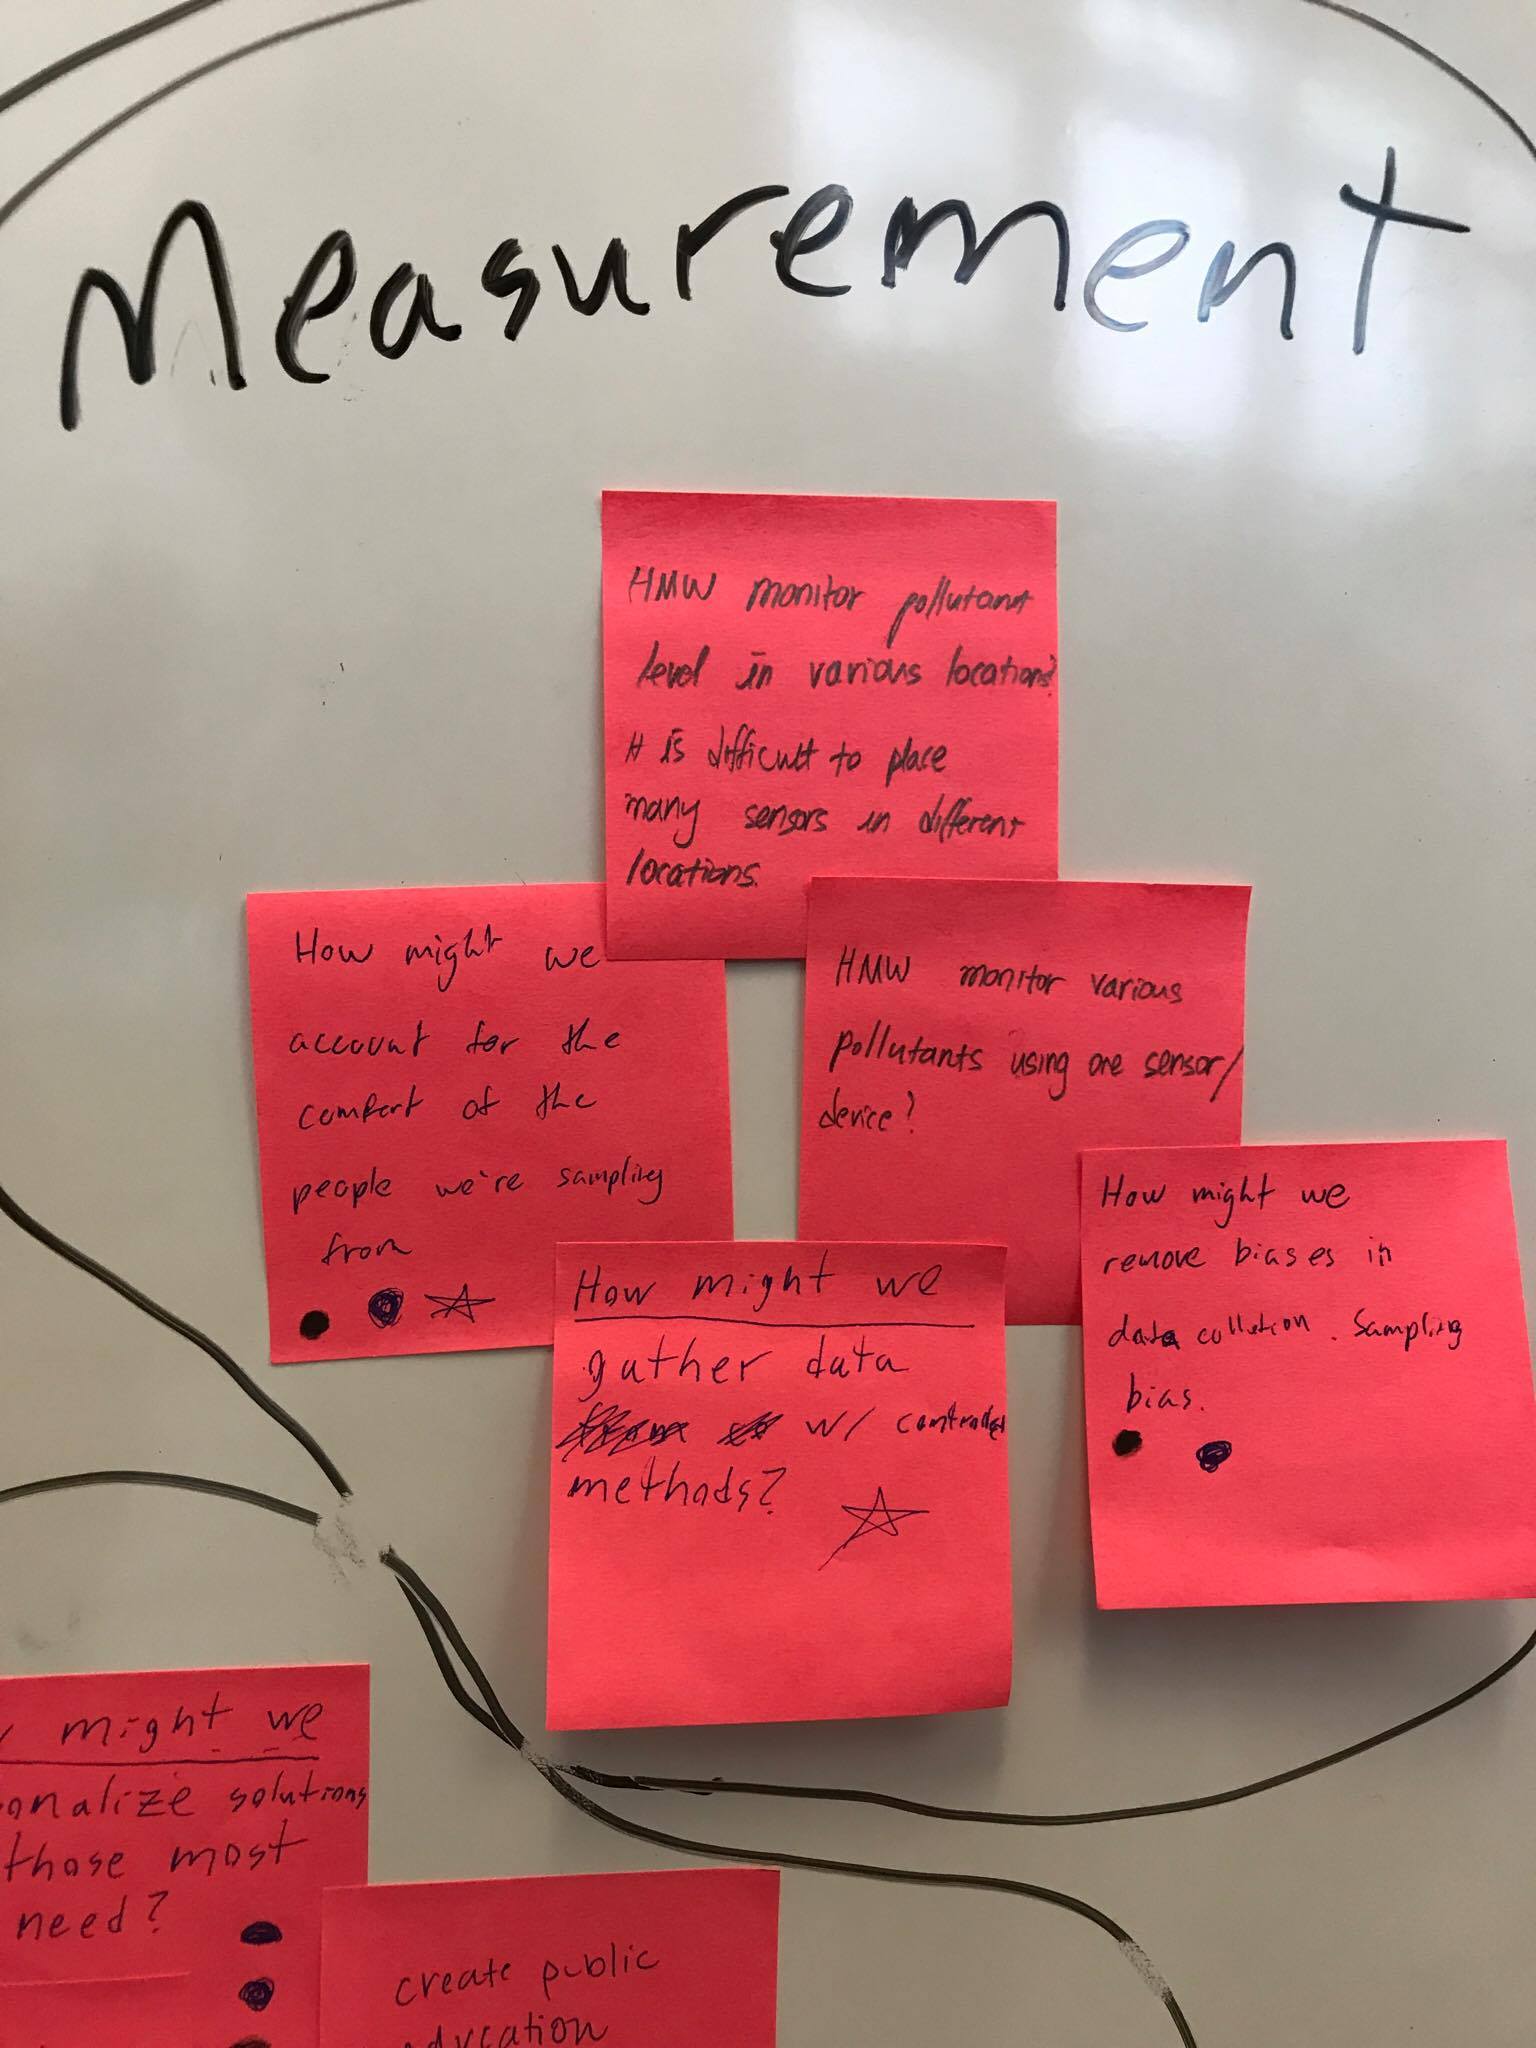 Measurement
HMW monitor pollutant
level in various locations?
It is difficult to place
many sensors in different
locations.
How might we
account for the
comfort of the
people we're sampling
from
HMW monitor various
pollutants using one sensor/
device?
How might we
gather data
w/
methods?
How might we
remove biases in
data colletion. Sampling
bias.
might we
onalize solutions
those most
need?
create public
education